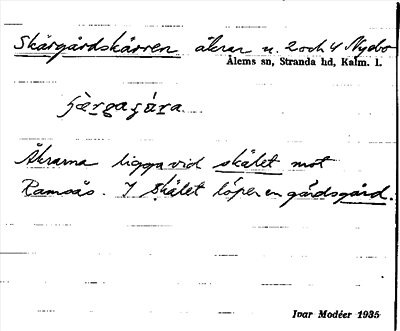 Skärgårdskärren åkrar u. 2 och 4 Nybo
Ålems sn, Stranda hd, Kalm. l.
Åkrarna ligga vid skälet mot
Ramsås. I skälet löper en gårdsgård.
Ivar Modéer 1935